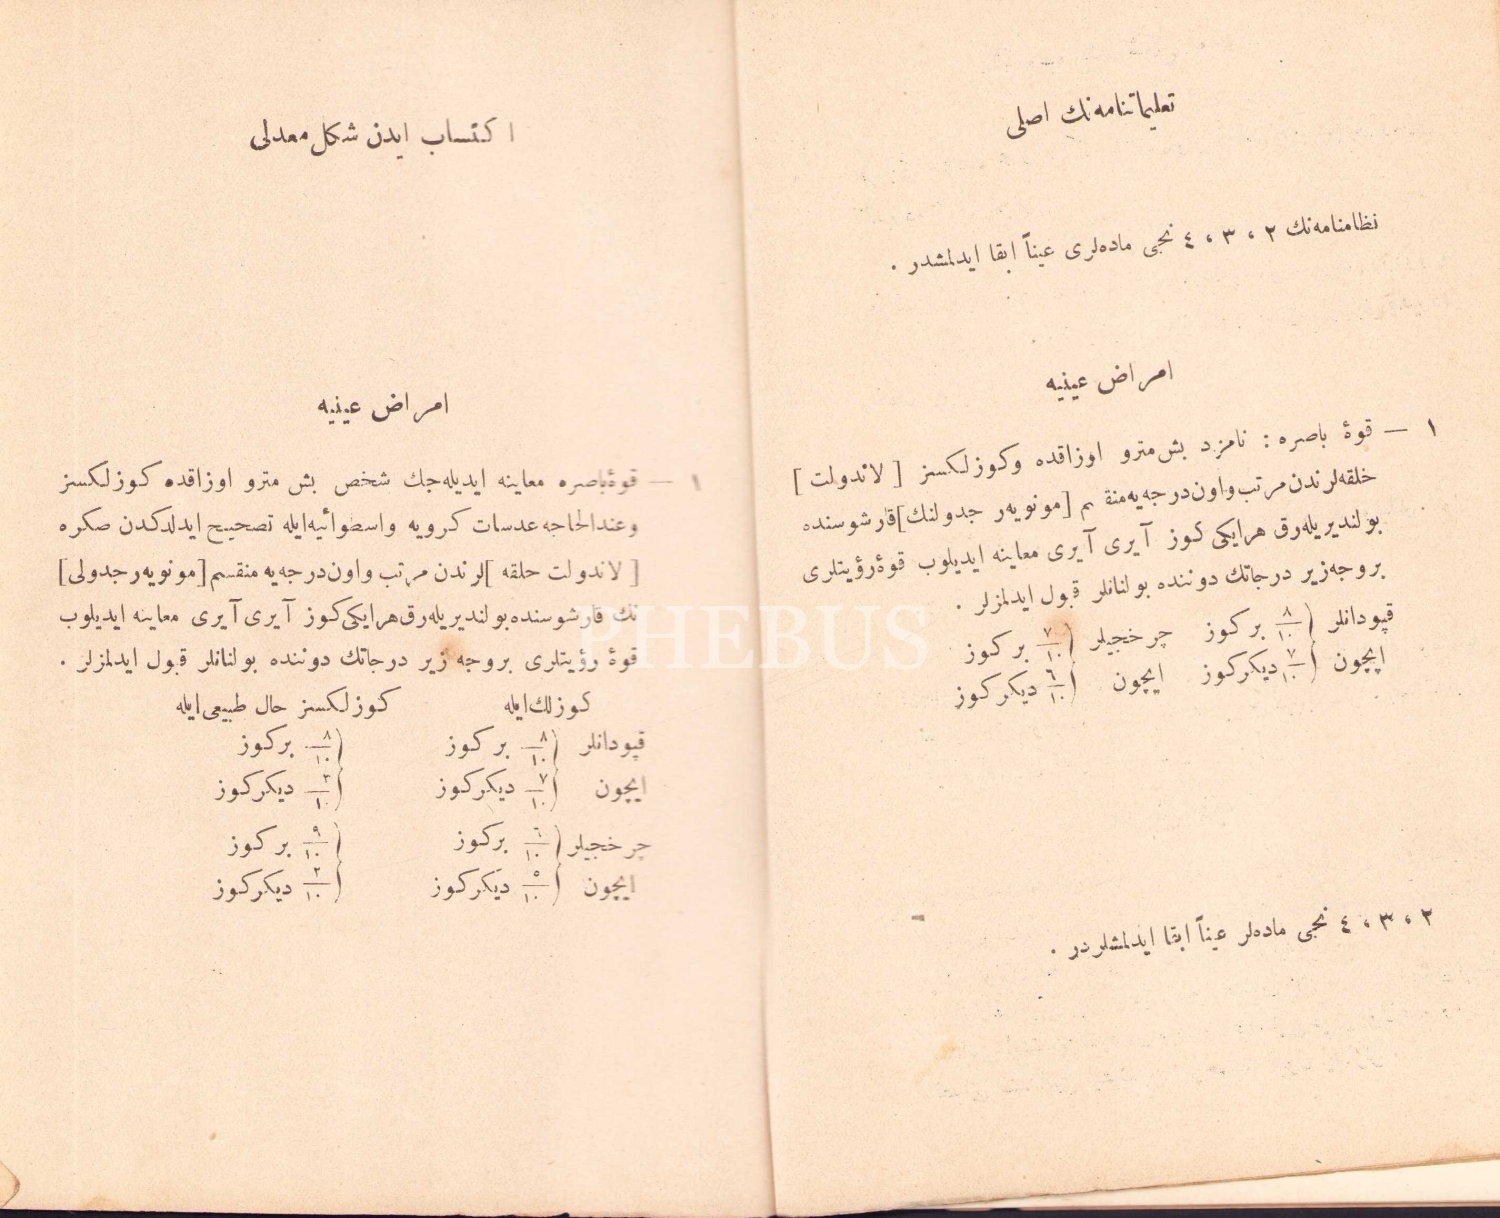 تعلیماتنامه‌نك اصلی
نظامنامه‌نك ٢ ، ٣ ، ٤ نجی ماده‌لری عیناً ابقا ایدلمشدر .
امراض عینیه
١ — قوهٔ باصره : نامزد بش مترو اوزاقده وكوزلكسز [ لاندولت ]
خلقه‌لرندن مرتب و اون درجه‌یه منقسم [ مونویه‌ر جدولنك ] قارشوسنده
بولندیریله‌رق هر ایكی كوز آیری آیری معاینه ایدیلوب قوهٔ رؤیتلری
بروجه زیر درجاتك دوننده بولنانلر قبول ایدلمزلر .
قپودانلر ( ٨/١٠ بر كوز چرخجیلر ( ٧/١٠ بر كوز
ایچون ( ٧/١٠ دیكر كوز ایچون ( ٦/١٠ دیكر كوز
٢ ، ٣ ، ٤ نجی ماده‌لر عیناً ابقا ایدلمشلردر .
اكتساب ایدن شكل معدلی
امراض عینیه
١ — قوهٔ باصره معاینه ایدیله‌جك شخص بش مترو اوزاقده كوزلكسز
وعندالحاجه عدسات كرویه واسطوائیه ایله تصحیح ایدلدكدن صكره
[ لاندولت حلقه ] لرندن مرتب و اون درجه‌یه منقسم [ مونویه‌ر جدولی ]
نك قارشوسنده بولندیریله‌رق هر ایكی كوز آیری آیری معاینه ایدیلوب
قوهٔ رؤیتلری بروجه زیر درجاتك دوننده بولنانلر قبول ایدلمزلر .
كوزلك ایله كوزلكسز حال طبیعی ایله
قپودانلر ( ٨/١٠ بر كوز ( ٨/١٠ بر كوز
ایچون ( ٧/١٠ دیكر كوز ( ٣/١٠ دیكر كوز
چرخجیلر ( ٦/١٠ بر كوز ( ٩/١٠ بر كوز
ایچون ( ٥/١٠ دیكر كوز ( ٢/١٠ دیكر كوز
PHEBUS